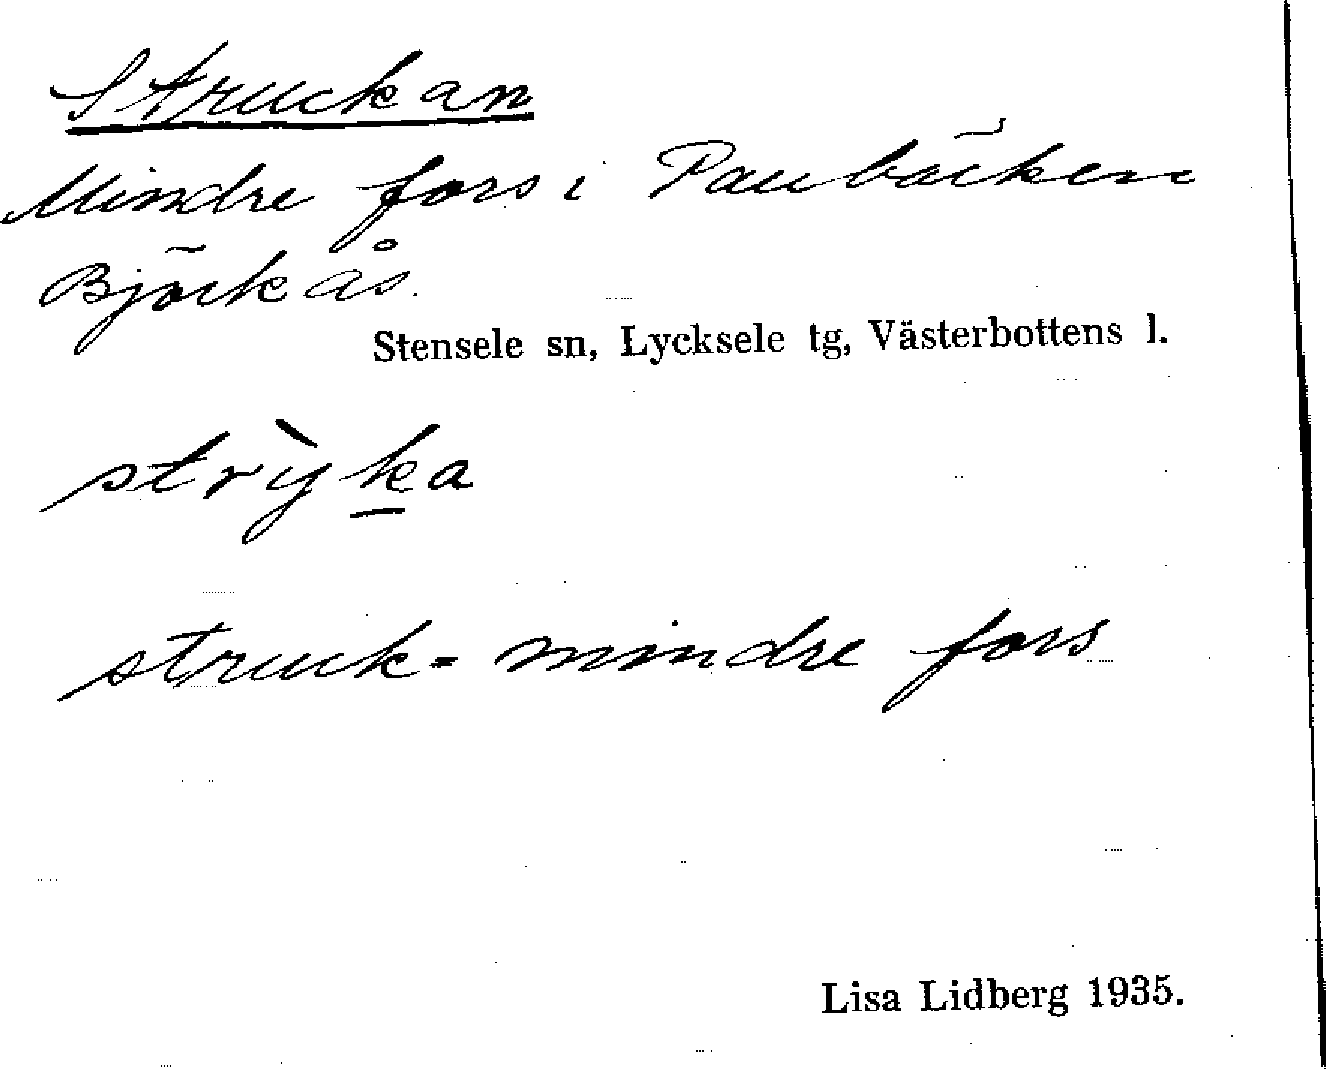 Struckan
Mindre fors i Paubäcken
Björkås.
Stensele sn, Lycksele tg, Västerbottens l.
strỳka
struck = mindre fors
Lisa Lidberg 1935.